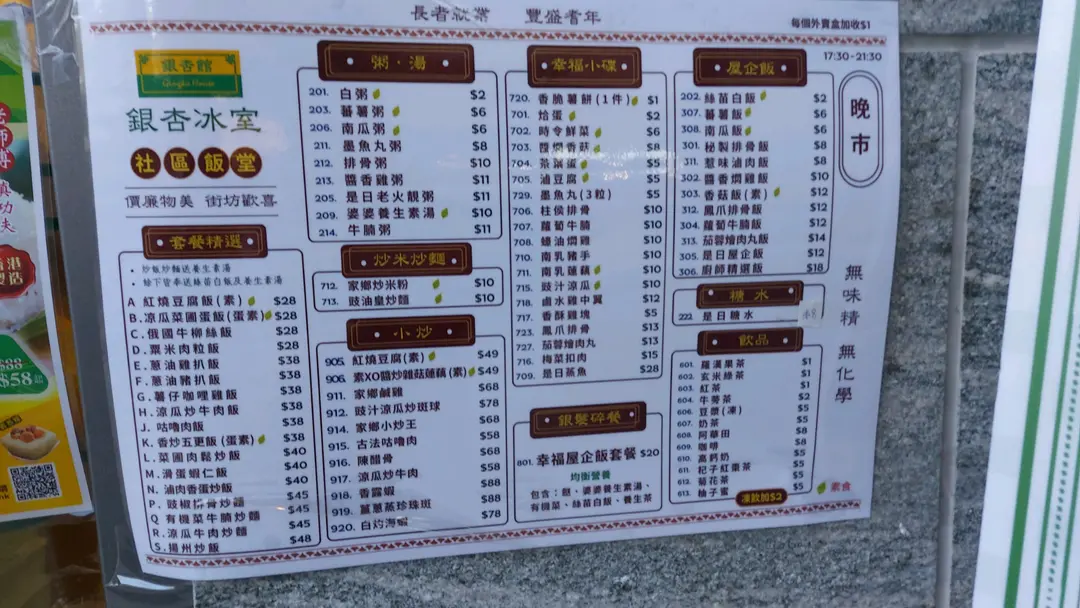 長者就業 豐盛耆年
每個外賣盒加收$1
17:30-21:30
晚市
銀杏館
Gingko House
銀杏冰室
社區飯堂
價廉物美 街坊歡喜
套餐精選
• 炒飯炒麵送養生素湯
• 餘下皆奉送絲苗白飯及養生素湯
A 紅燒豆腐飯(素) $28
B.涼瓜菜圃蛋飯(蛋素) $28
C.俄國牛柳絲飯 $28
D.粟米肉粒飯 $28
E.蔥油雞扒飯 $38
F.蔥油豬扒飯 $38
G.薯仔咖哩雞飯 $38
H.涼瓜炒牛肉飯 $38
J.咕嚕肉飯 $38
K.香炒五更飯(蛋素) $38
L.菜圃肉鬆炒飯 $40
M.滑蛋蝦仁飯 $40
N.滷肉香蛋炒飯 $45
P.豉椒排骨炒麵 $45
Q 有機菜牛腩炒麵 $45
R.涼瓜牛肉炒麵 $45
S.揚州炒飯 $48
粥·湯
201. 白粥 $2
203. 蕃薯粥 $6
206. 南瓜粥 $6
211. 墨魚丸粥 $8
212. 排骨粥 $10
213. 醬香雞粥 $11
205. 是日老火靚粥 $11
209. 婆婆養生素湯 $10
214. 牛腩粥 $11
炒米炒麵
712. 家鄉炒米粉 $10
713. 豉油皇炒麵 $10
小炒
905. 紅燒豆腐(素) $49
906. 素XO醬炒雜菇蓮藕(素) $49
911. 家鄉鹹雞 $68
912. 豉汁涼瓜炒斑球 $78
914. 家鄉小炒王 $68
915. 古法咕嚕肉 $58
916. 陳醋骨 $68
917. 涼瓜炒牛肉 $58
918. 香露蝦 $88
919. 薑蔥蒸珍珠斑 $88
920. 白灼海蝦 $78
幸福小碟
720. 香脆薯餅(1件) $1
701. 烚蛋 $2
702. 時令鮮菜 $6
703. 醬燜香菇 $8
704. 茶葉蛋 $5
705. 滷豆腐 $5
729. 墨魚丸(3粒) $5
706. 柱侯排骨 $10
707. 蘿蔔牛腩 $10
708. 蠔油燜雞 $10
710. 南乳豬手 $10
711. 南乳蓮藕 $10
715. 豉汁涼瓜 $10
718. 鹵水雞中翼 $12
717. 香酥雞塊 $5
723. 鳳爪排骨 $13
727. 茄蓉燴肉丸 $13
716. 梅菜扣肉 $15
709. 是日蒸魚 $28
銀髮碎餐
801. 幸福屋企飯套餐 $20
均衡營養
包含：餸、婆婆養生素湯、
有機菜、絲苗白飯、養生茶
屋企飯
202. 絲苗白飯 $2
307. 蕃薯飯 $6
308. 南瓜飯 $6
301. 秘製排骨飯 $8
311. 惹味滷肉飯 $8
302. 醬香燜雞飯 $10
303. 香菇飯(素) $12
312. 鳳爪排骨飯 $12
304. 蘿蔔牛腩飯 $12
313. 茄蓉燴肉丸飯 $14
305. 是日屋企飯 $12
306. 廚師精選飯 $18
糖水
222. 是日糖水
飲品
601. 羅漢果茶 $1
602. 玄米綠茶 $1
603. 紅茶 $1
604. 牛蒡茶 $2
606. 豆漿(凍) $5
607. 奶茶 $5
608. 阿華田 $8
609. 咖啡 $8
610. 高鈣奶 $5
611. 杞子紅棗茶 $5
612. 菊花茶 $5
613. 柚子蜜 $5
凍飲加$2
素食
無味精 無化學
老師傅
真功夫
香港製造
$88
$58起